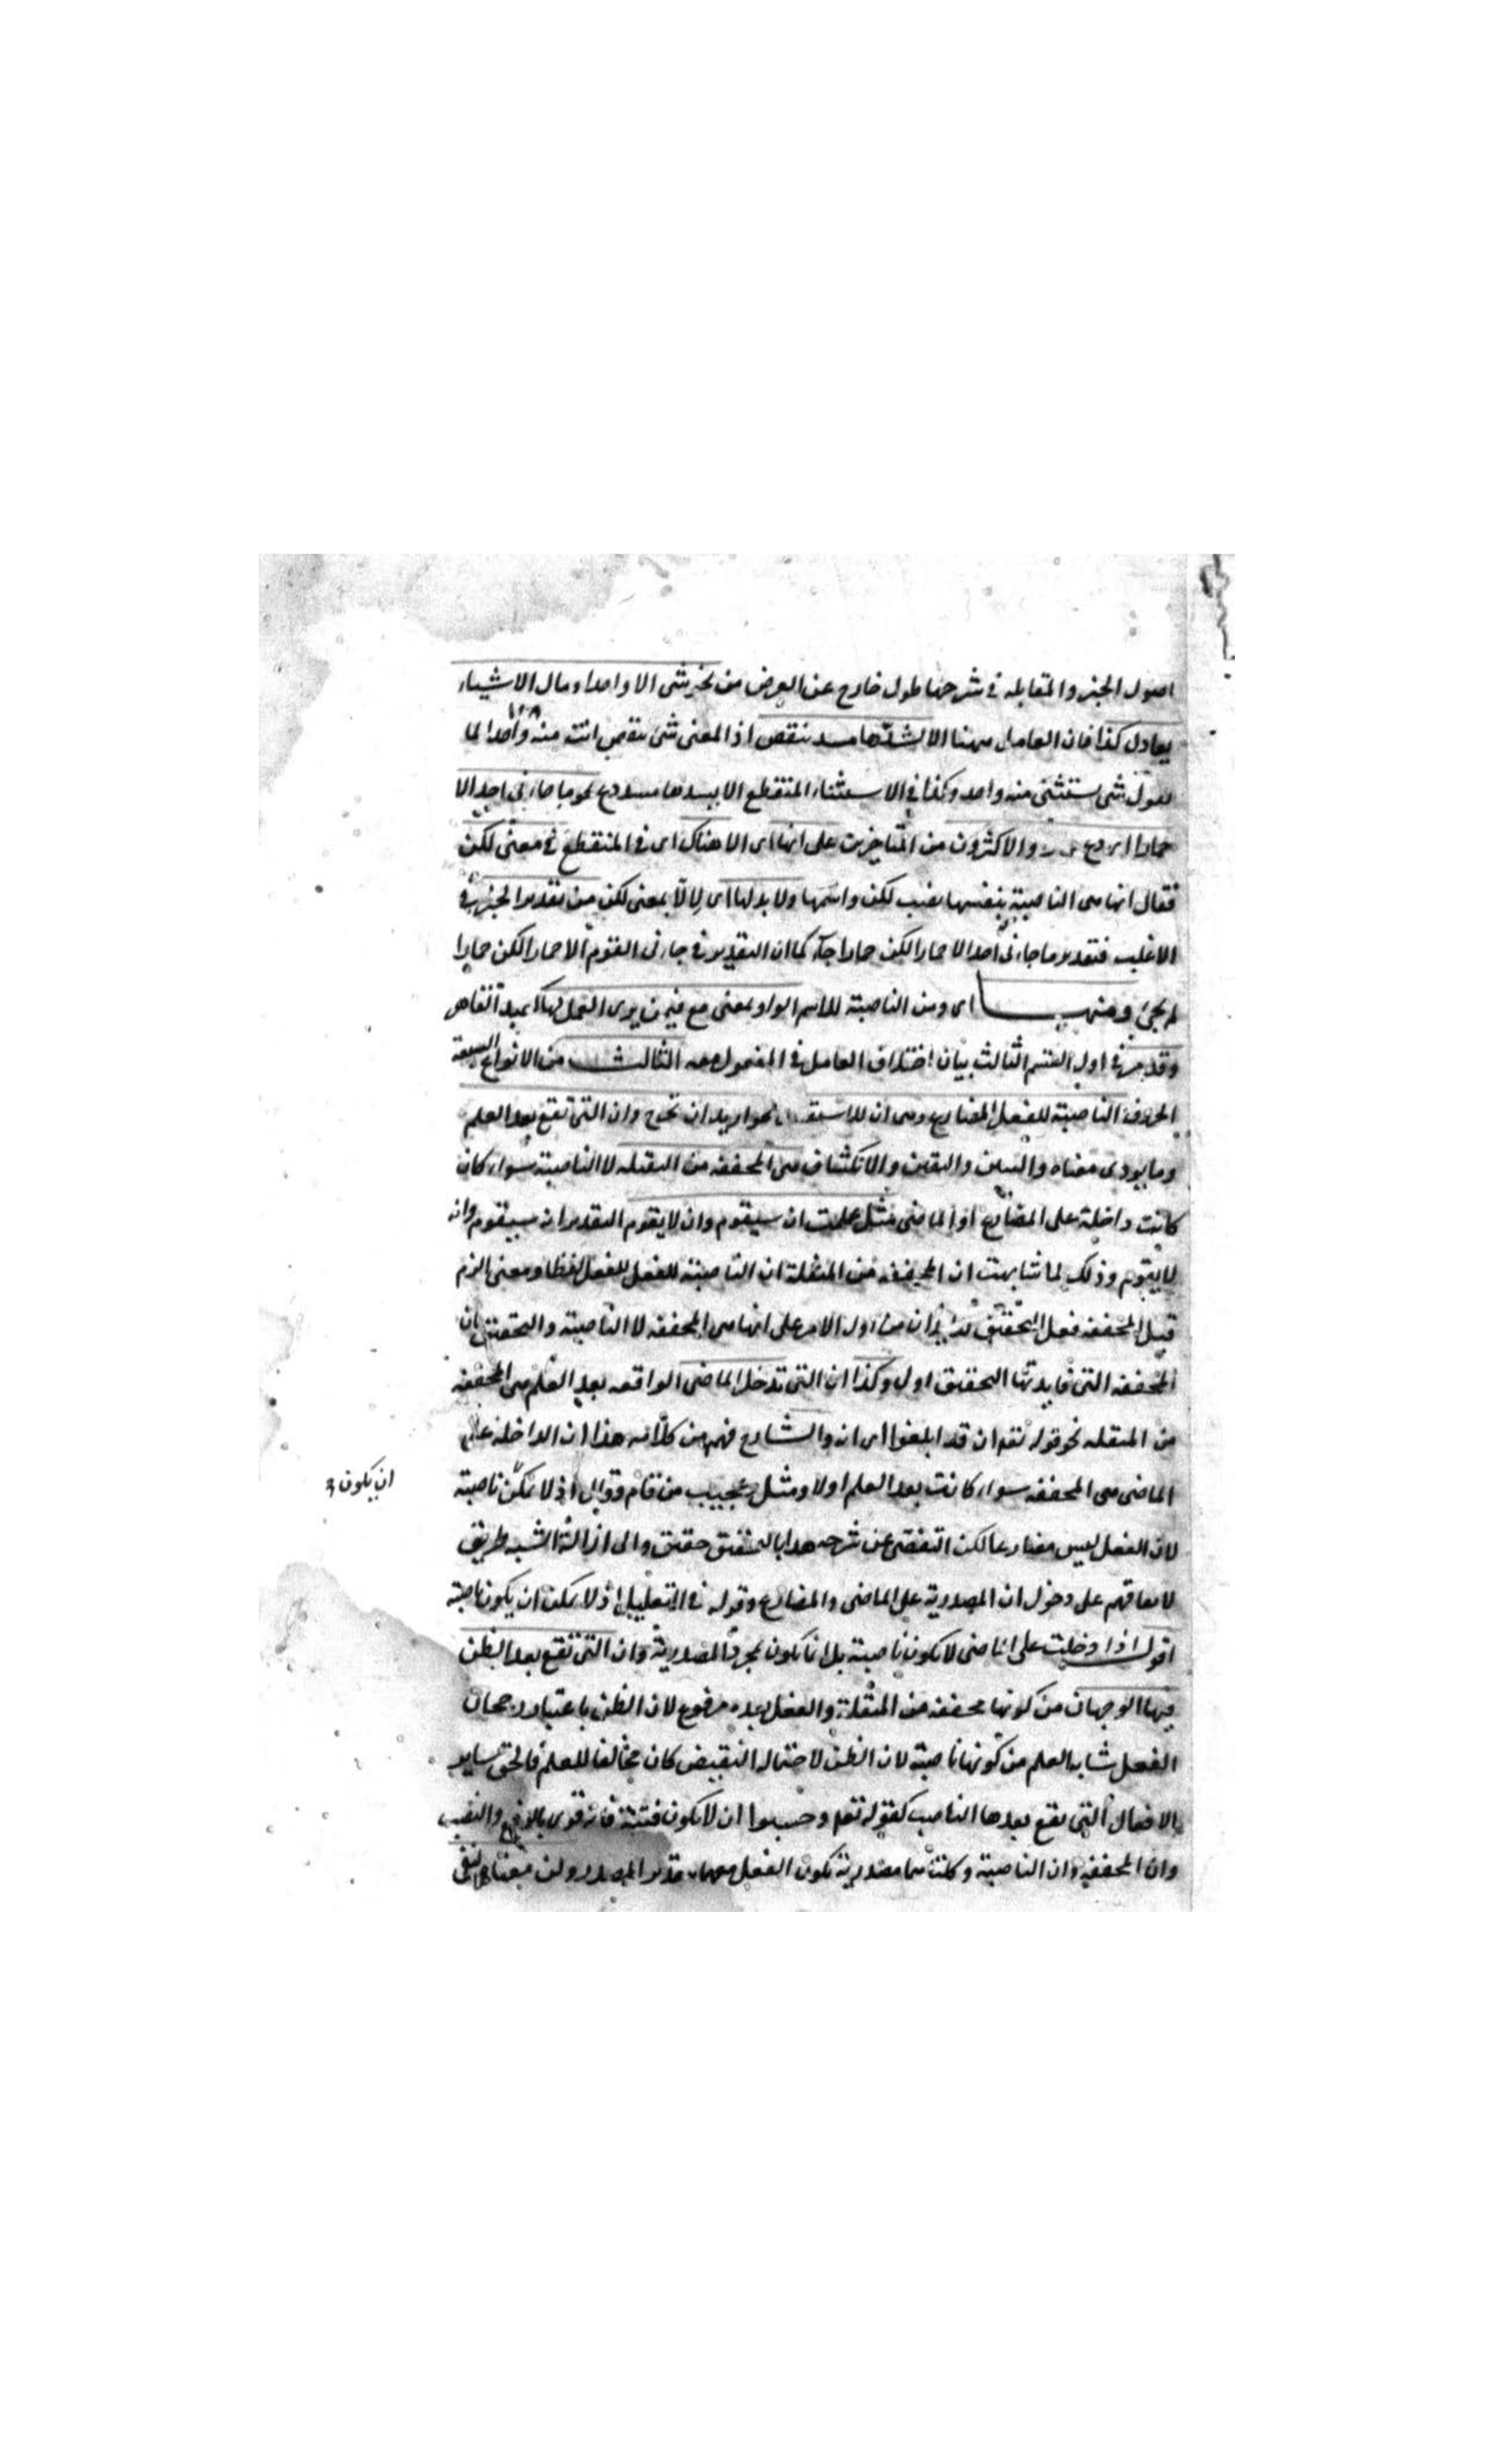 اصول الجبر والمقابله في شرحها طول خارج عن الغرض من نحو شى الا واحدا ومال الا شياء
يعادل كذا فان العامل ههنا الا لسدها مسد ينقص اذ المعنى شئ ينقص انت منه واحدا لما
١٢٨
شى يستثنى منه واحد وكذا في الاستثناء المنقطع الا لسدها مسد نحو ما جاءنى احد الا
حمارا والاكثرون من المتاخرين على انها اى الا هناك اى في المنقطع في معنى لكن
فقال انها هى الناصبة بنفسها نصب لكن واسمها ولا بد لها اى لالا بمعنى لكن من تقدير الخبر في
الاغلب فتقدير ما جاءنى احد الا حمارا لكن حمارا جاء كما ان التقدير في جاءنى القوم الا حمارا لكن حمارا
لم يجئ ومنها اى ومن الناصبة للاسم الواو بمعنى مع فيمن يرى العمل لها عبد القاهر
وقد مر في اول القسم الثالث بيان اختلاف العامل في المفعول معه الثالث من الانواع السبعة
الحروف الناصبة للفعل المضارع وهى ان للاستقبال نحو اريد ان تخرج وان التى تقع بعد العلم
وما يودى معناه والتبيين واليقين والانكشاف هى المخففه من الثقيله لا الناصبة سواء كان
كانت داخلة على المضارع او الماضى مثل علمت ان سيقوم وان لا يقوم التقدير انه سيقوم وانه
لا يقوم وذلك لما شابهت ان المخففه من المثقلة ان الناصبة للفعل لفظا ومعنى الزم
قبل المخففه فعل التحقيق ليؤذن من اول الامر على انها هى المخففه لا الناصبة والتحقيق بان
المخففه التى فايدتها التحقيق اولى وكذا ان التى تدخل الماضى الواقعه بعد العلم هى المخففه
من المثقله نحو قوله تعم ان قد ابلغوا اى انه والشارح فهم من كلامه هذا ان الداخلة على
الماضى هى المخففه سواء كانت بعد العلم اولا ومثل بعجبت من ان قام وقال اذ لا يمكن ناصبة
ان يكون
لان الفعل ليس مضارعا لكن التفصى عن شرحه هذا بالتحقيق حقيق والى ازالة الشبه طريق
لاتفاقهم على دخول ان المصدرية على الماضى والمضارع وقوله في التعليل اذ لا يمكن ان يكون ناصبة
اقول اذا دخلت على الماضى لا يكون ناصبة بل انما يكون لمجرد المصدرية وان التى تقع بعد الظن
فيها الوجهان من كونها مخففه من المثقلة والفعل بعده مرفوع لان الظن باعتبار رجحان
الفعل شابه العلم من كونها ناصبة لان الظن لاحتماله النقيض كان مخالفا للعلم فالحق بساير
الافعال التى يقع بعدها الناصب كقوله تعم وحسبوا ان لا تكون فتنة فانه قرى بالرفع والنصب
وان المخففة وان الناصبة وكلتاهما مصدرية يكون الفعل معهما بتقدير المصدر ولن معناها نفى